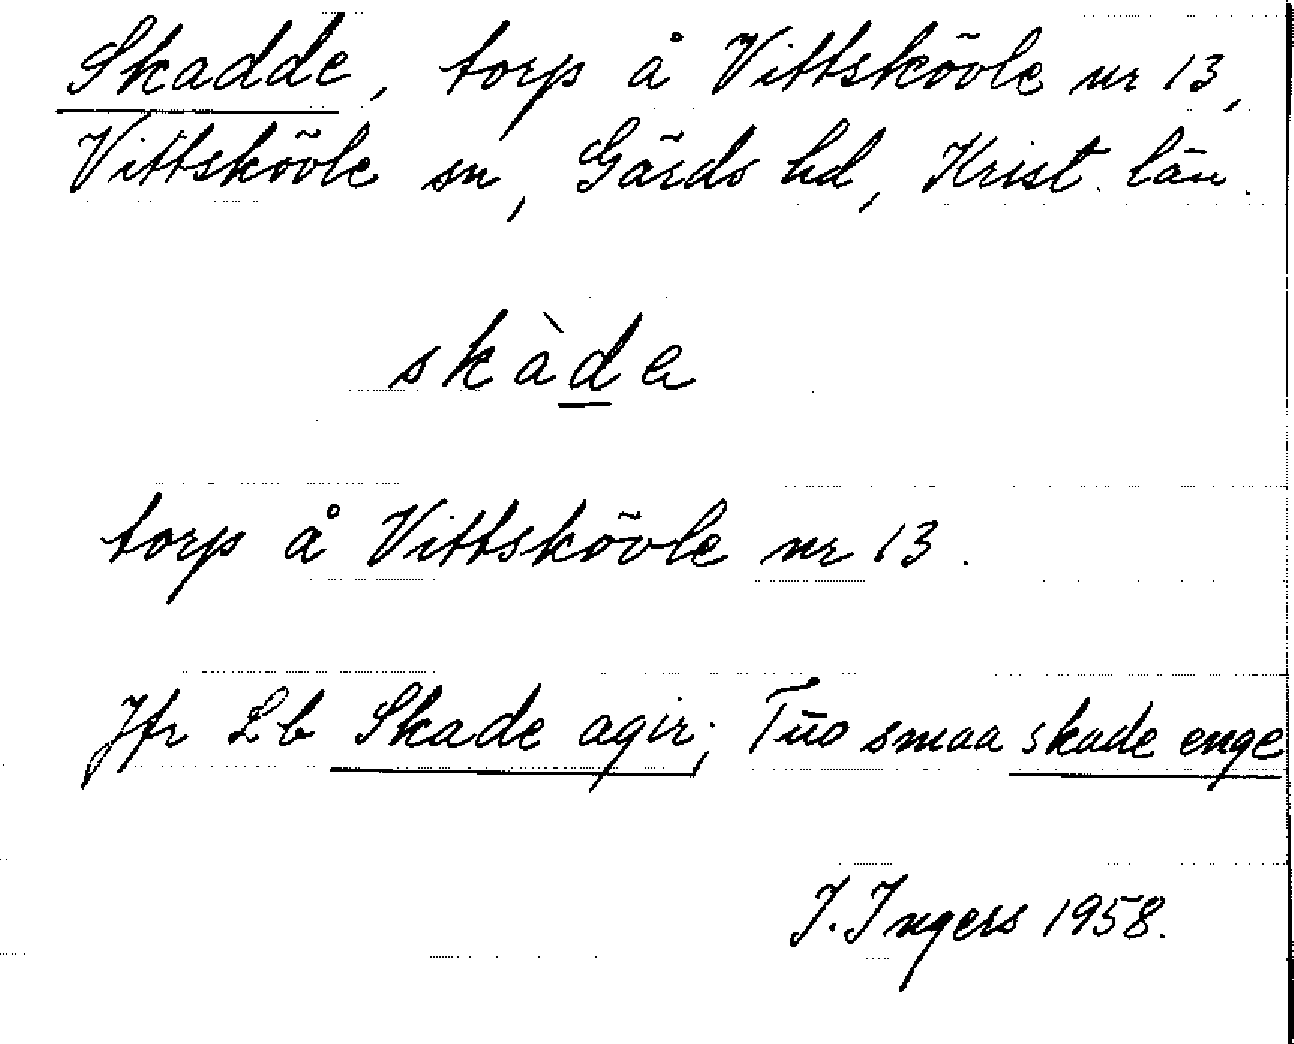 Skadde, torp å Vittskövle nr 13,
Vittskövle sn, Gärds hd, Krist. län.
skàda
torp å Vittskövle nr 13.
Jfr Lb Skade agir; Tūo smaa skade enge
I. Ingers 1958.